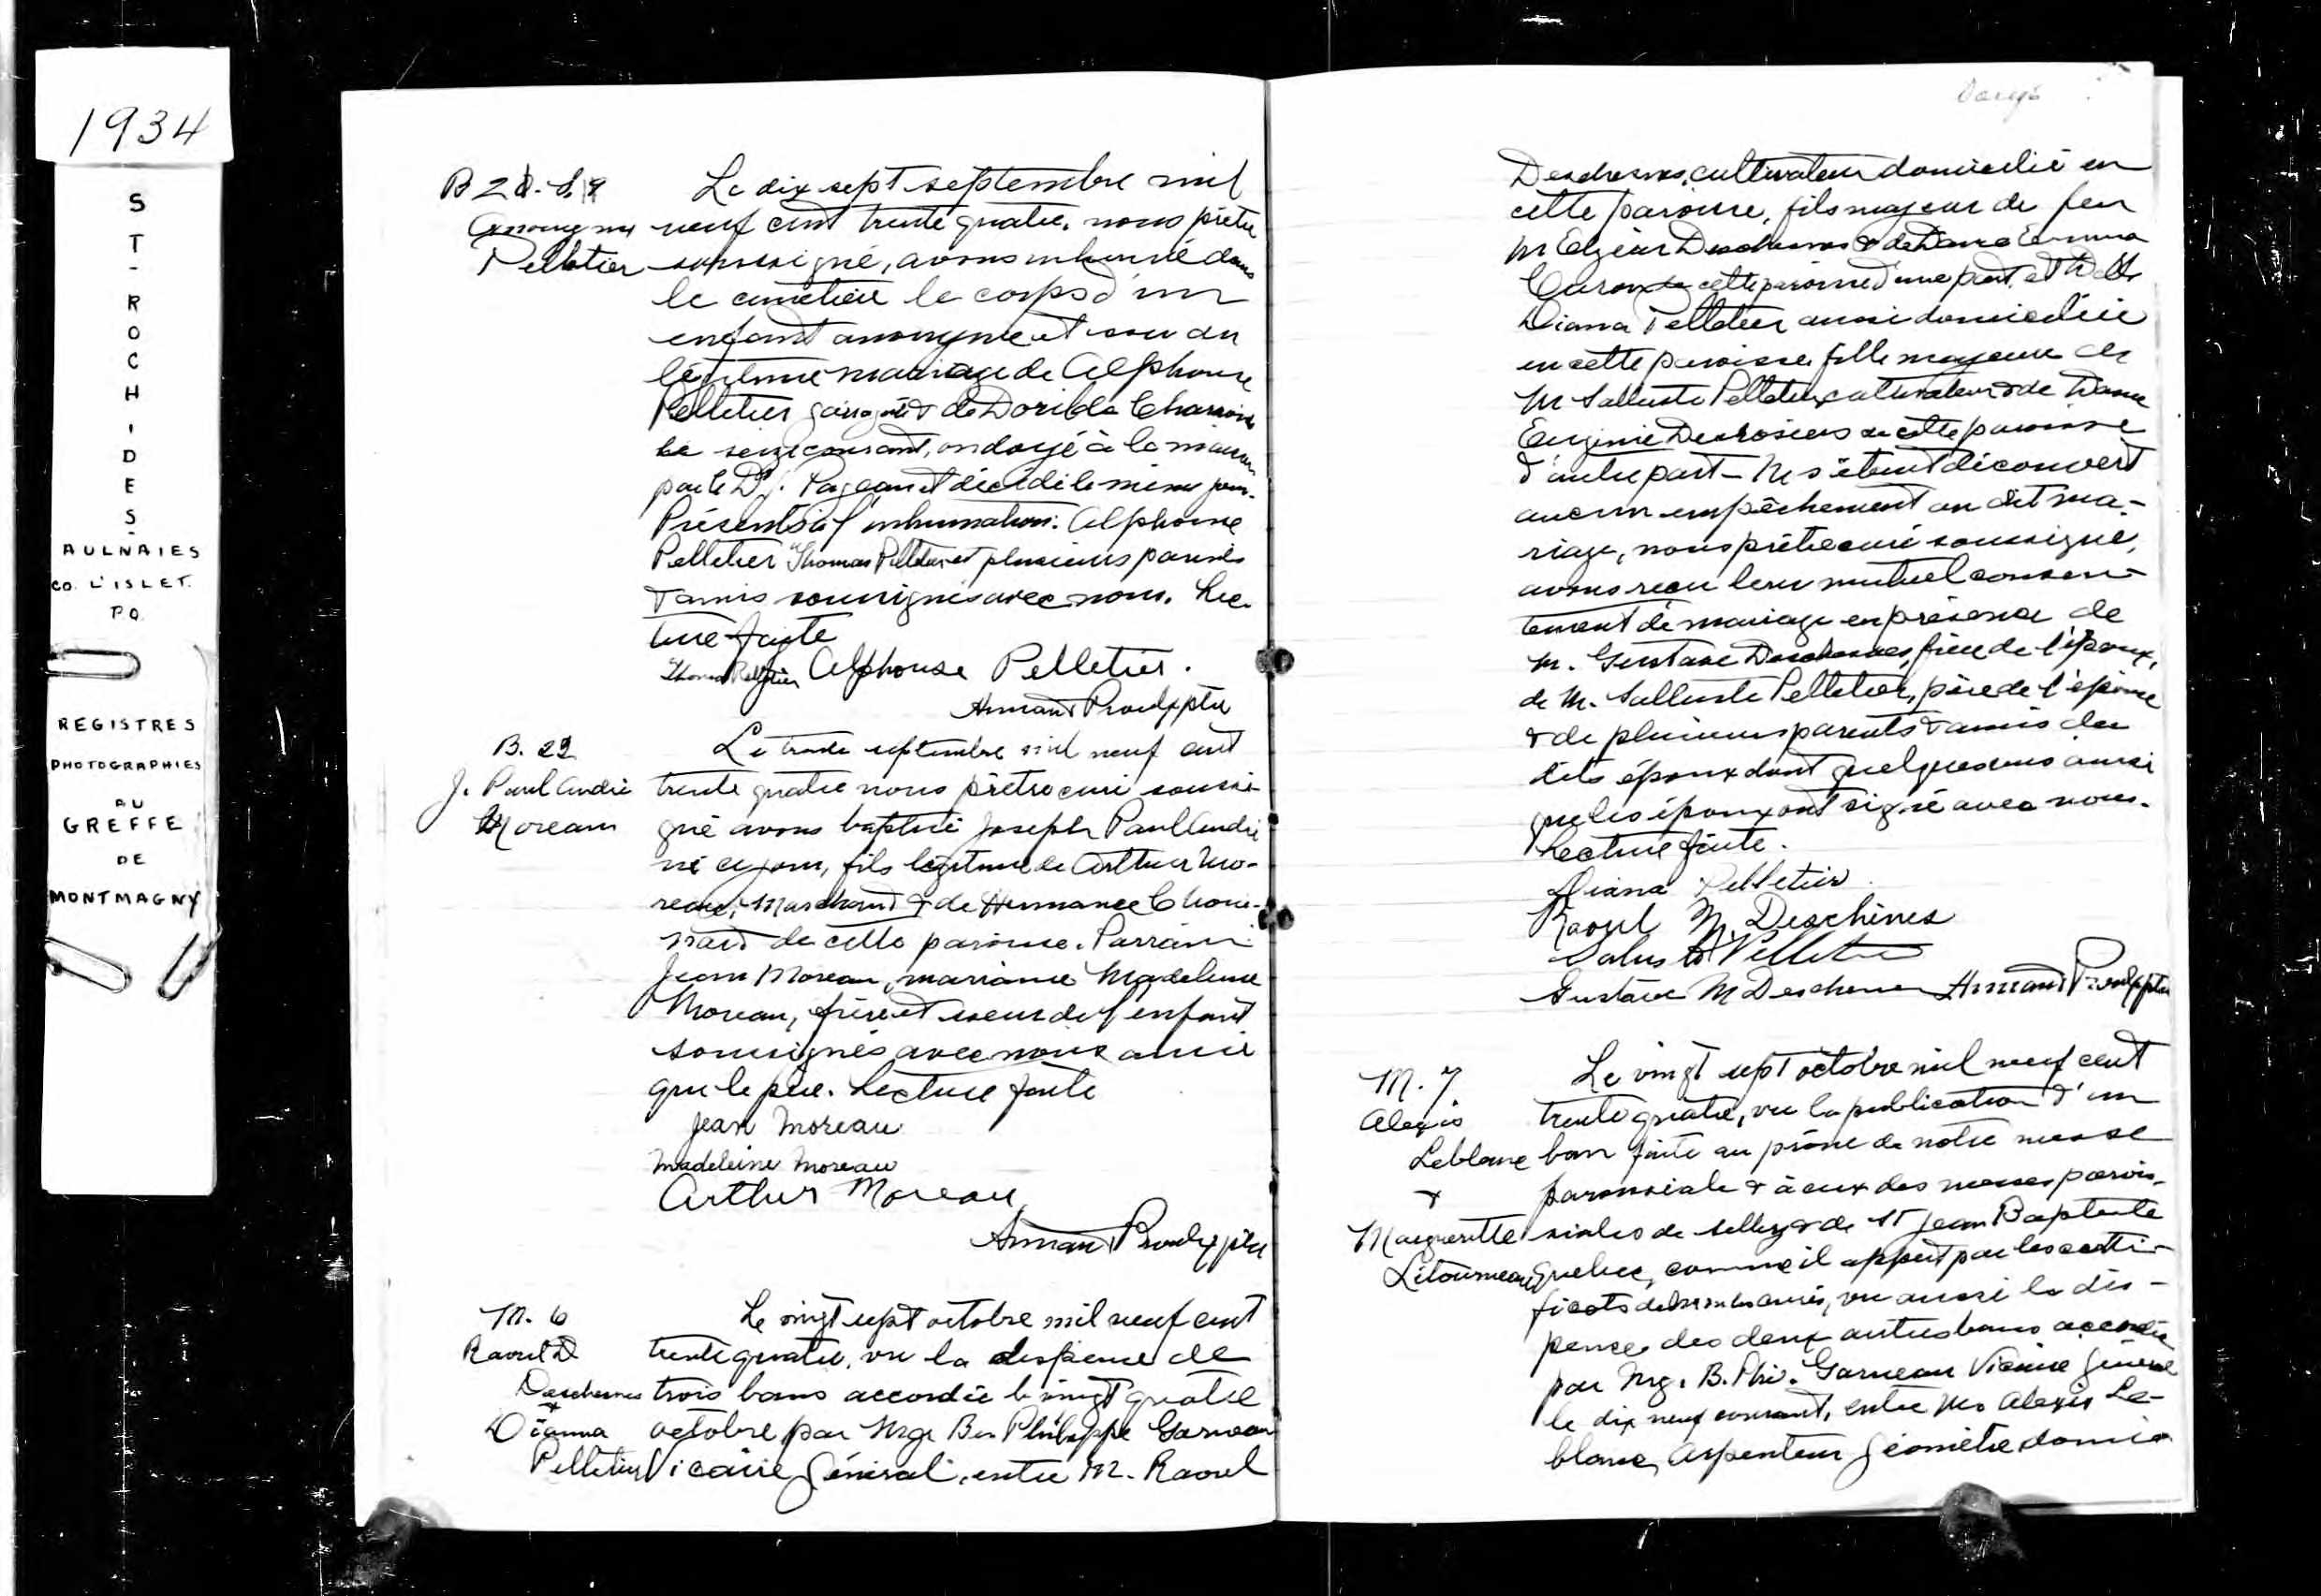 1934
ST-ROCH-DES-
AULNAIES
CO. L'ISLET.
P.Q.
REGISTRES
PHOTOGRAPHIES
AU
GREFFE
DE
MONTMAGNY
B 28. S 9
Anonyme
Pelletier
Le dix sept septembre mil
neuf cent trente quatre, nous prêtre
soussigné, avons inhumé dans
le cimetière le corps d'un
enfant anonyme et né du
légitime mariage de Alphonse
Pelletier & de Dorilda
le seize courant, ondoyé à la maison
par le Dr. Pageau et décédé le même jour.
Présents à l'inhumation: Alphonse
Pelletier Thomas Pelletier et plusieurs parents
& amis soussignés avec nous. Lec
ture faite
Thomas Pelletier Alphonse Pelletier.
Armand Proulx ptre
B. 29
J. Paul André
Moreau
Le trente septembre mil neuf cent
trente quatre nous prêtre curé soussi-
gné avons baptisé Joseph Paul André
né ce jour, fils légitime de Arthur Mo-
reau, Marchand & de Hermance Choui-
nard de cette paroisse. Parrain
Jean Moreau, marraine Madeleine
Moreau, frère et soeur de l'enfant
soussignés avec nous ainsi
que le père. Lecture faite
Jean Moreau
Madeleine Moreau
Arthur Moreau
Armand Proulx ptre
M. 6
Raoul D
Deschenes
&
Dianna
Pelletier
Le vingt sept octobre mil neuf cent
trente quatre, vu la dispense de
trois bans accordée le vingt quatre
octobre par Mgr Bn Philippe Garneau
Vicaire Général, entre M. Raoul
Deschesnes, cultivateur domicilié en
cette paroisse, fils majeur de feu
M Elzéar Deschesnes & de Dame Emma
Caron de cette paroisse d'une part, et Delle
Diana Pelletier aussi domiciliée
en cette paroisse, fille majeure de
M Salluste Pelletier cultivateur & de Dame
Eugénie Desrosiers de cette paroisse
d'autre part - Ne s'étant découvert
aucun empêchement au dit ma-
riage, nous prêtre curé soussigné,
avons reçu leur mutuel consen-
tement de mariage en présence de
M. Gustave Deschesnes, frère de l'époux,
de M. Salluste Pelletier, père de l'épouse
& de plusieurs parents & amis des
dits époux dont quelques uns ainsi
que les époux ont signé avec nous.
Lecture faite.
Diana Pelletier
Raoul M. Deschênes
Saluste Pelletier
Gustave M Deschenes Armand Proulx ptre
M. 7
Alexis
Leblanc
&
Marguerite
Létourneau
Le vingt sept octobre mil neuf cent
trente quatre, vu la publication d'un
ban faite au prône de notre messe
paroissiale & à ceux des messes parois-
siales de Sillery & de St Jean Baptiste
Quebec, comme il appert par les certi-
ficats de messieurs les curés, vu aussi la dis-
pense des deux autres bans accordée
par Mgr. B. Phi. Garneau Vicaire Général
le dix neuf courant, entre Mr Alexis Le-
blanc, Arpenteur Géomètre domici